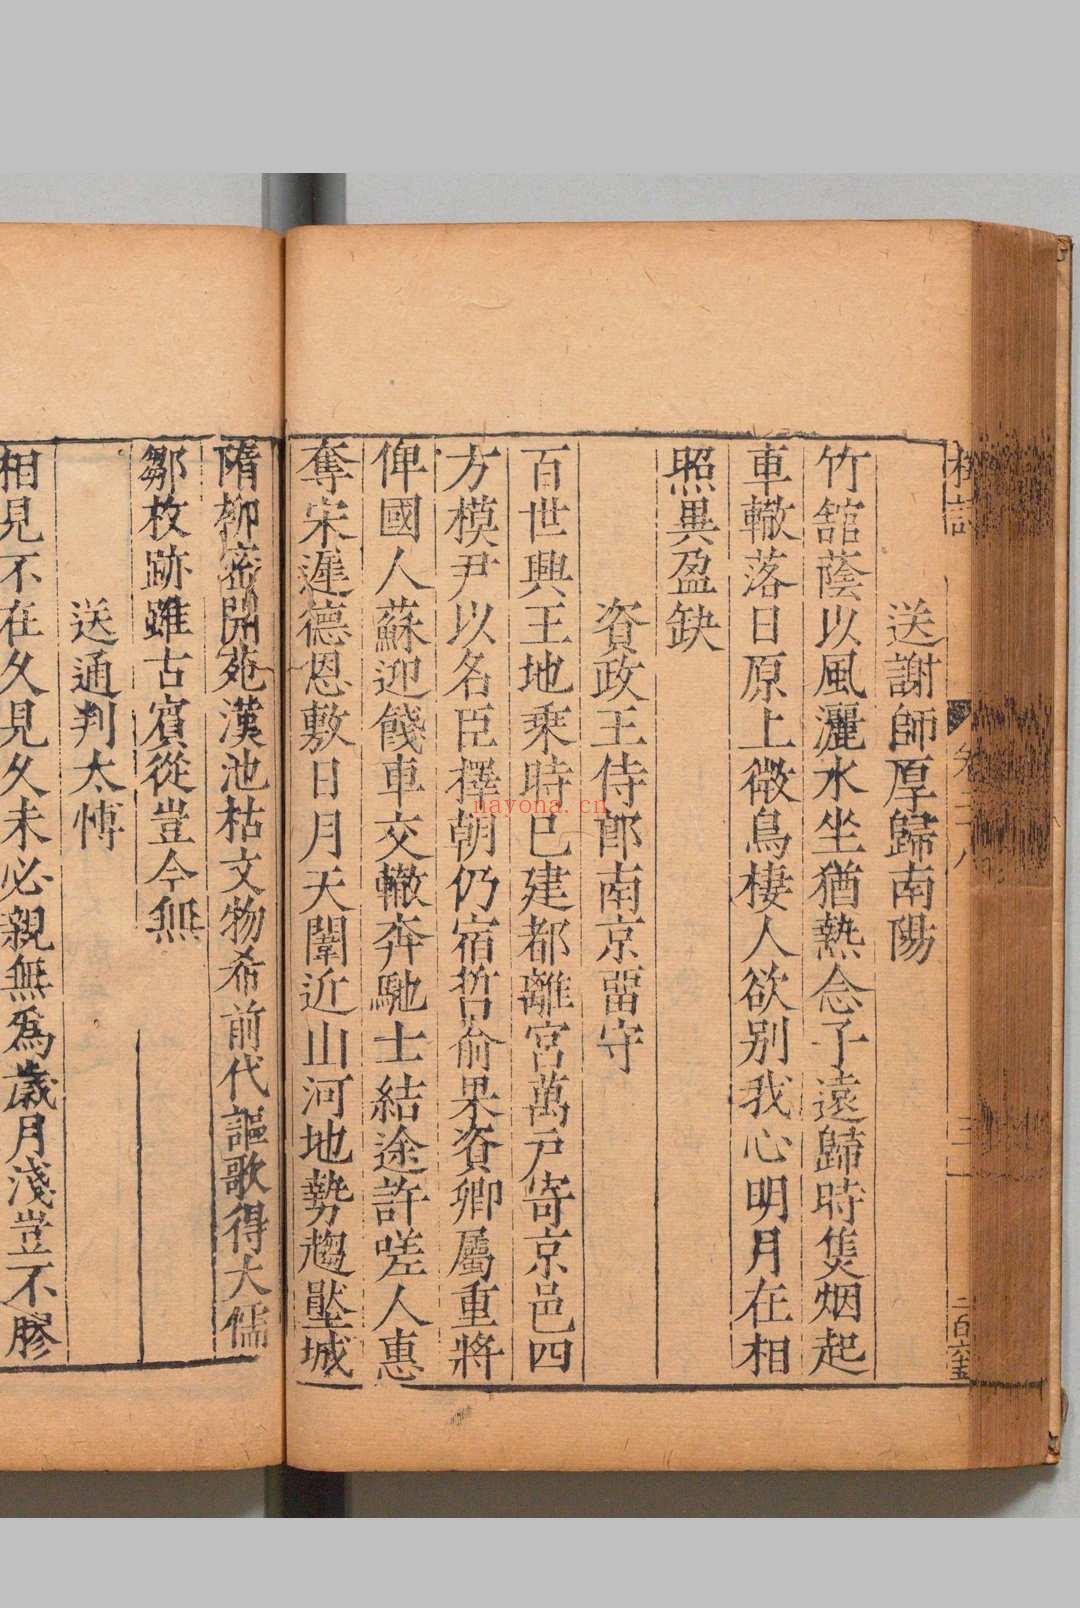 送謝師厚歸南陽
竹舘蔭以風灑水坐猶熱念子遠歸時隻烟起
車轍落日原上微鳥棲人欲別我心明月在相
照異盈缺
資政王侍郎南京畱守
百世興王地乘時已建都離宮萬戸寄京邑四
方模尹以名臣擇朝仍宿哲俞果資卿屬重將
俾國人蘇迎餞車交轍奔馳士結途許嗟人惠
奪宋遲德恩敷日月天闈近山河地勢趨壓城
隋柳密開苑漢池枯文物希前代謳歌得大儒
鄒枚跡雖古賓從豈今無
送通判太愽
相見不在久見久未必親無爲歲月淺豈不膠
卷二十八
二百六十五
nayona.cn